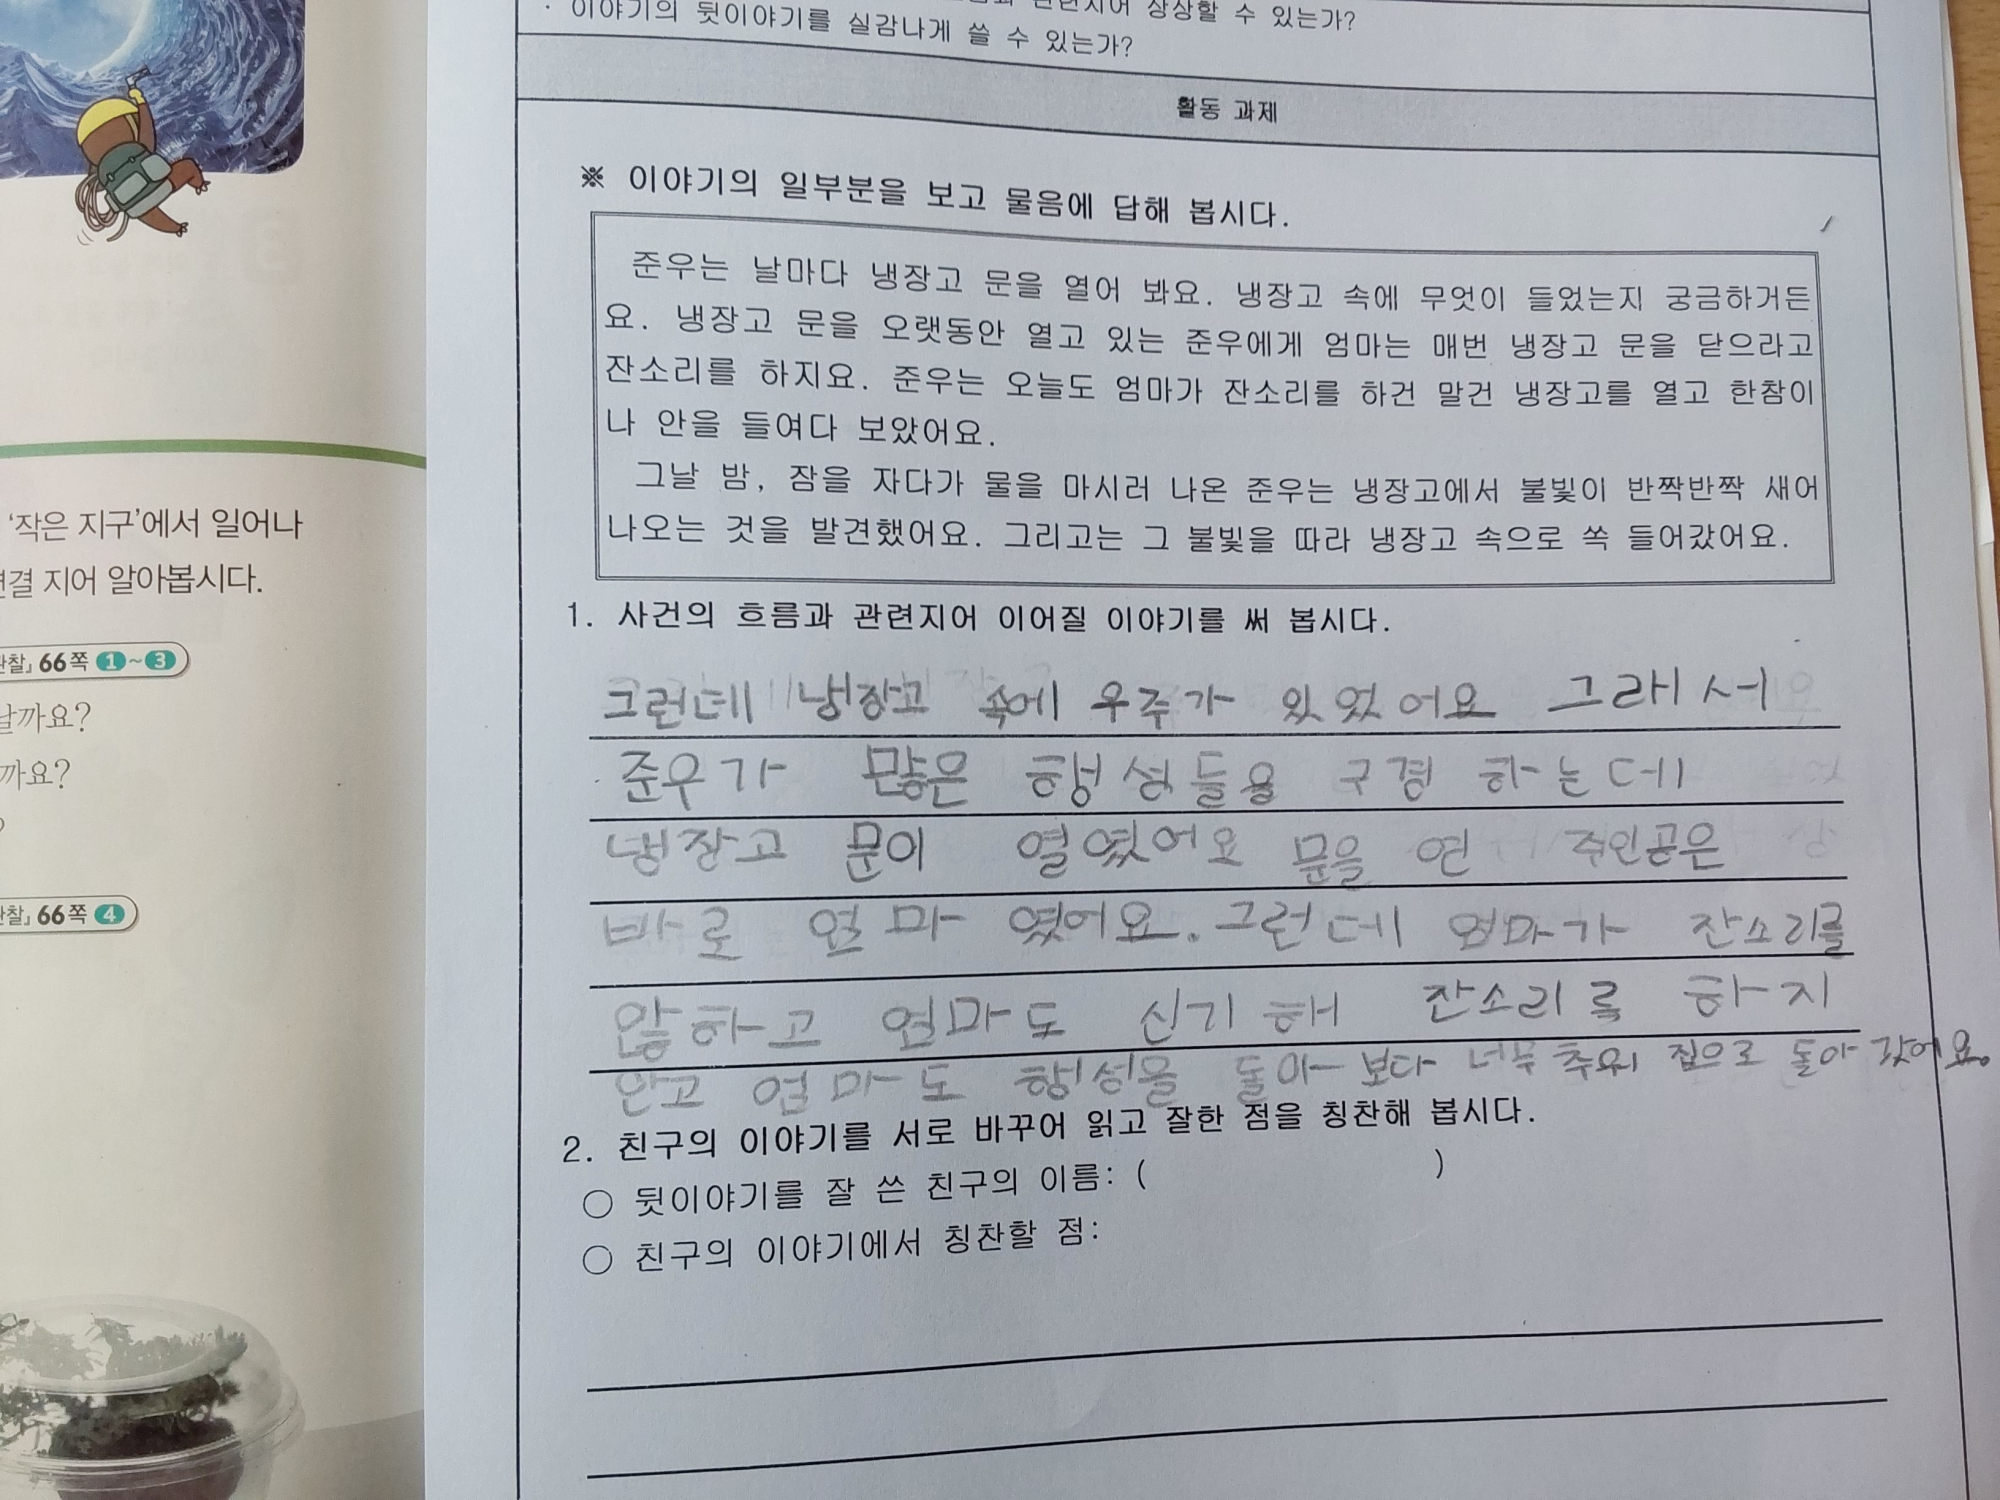 상상할 수 있는가?
· 이야기의 뒷이야기를 실감나게 쓸 수 있는가?
활동 과제
※ 이야기의 일부분을 보고 물음에 답해 봅시다.
준우는 날마다 냉장고 문을 열어 봐요. 냉장고 속에 무엇이 들었는지 궁금하거든
요. 냉장고 문을 오랫동안 열고 있는 준우에게 엄마는 매번 냉장고 문을 닫으라고
잔소리를 하지요. 준우는 오늘도 엄마가 잔소리를 하건 말건 냉장고를 열고 한참이
나 안을 들여다 보았어요.
그날 밤, 잠을 자다가 물을 마시러 나온 준우는 냉장고에서 불빛이 반짝반짝 새어
나오는 것을 발견했어요. 그리고는 그 불빛을 따라 냉장고 속으로 쏙 들어갔어요.
1. 사건의 흐름과 관련지어 이어질 이야기를 써 봅시다.
그런데 냉장고 속에 우주가 있었어요 그래서
준우가 많은 행성들을 구경 하는데
냉장고 문이 열렸어요 문을 연 주인공은
바로 엄마 였어요. 그런데 엄마가 잔소리를
않하고 엄마도 신기해 잔소리를 하지
안고 엄마도 행성을 돌아 보다 너무 추워 집으로 돌아 갔어요.
2. 친구의 이야기를 서로 바꾸어 읽고 잘한 점을 칭찬해 봅시다.
○ 뒷이야기를 잘 쓴 친구의 이름: ( )
○ 친구의 이야기에서 칭찬할 점:
'작은 지구'에서 일어나
연결 지어 알아봅시다.
66쪽 1~3
날까요?
까요?
?
66쪽 4